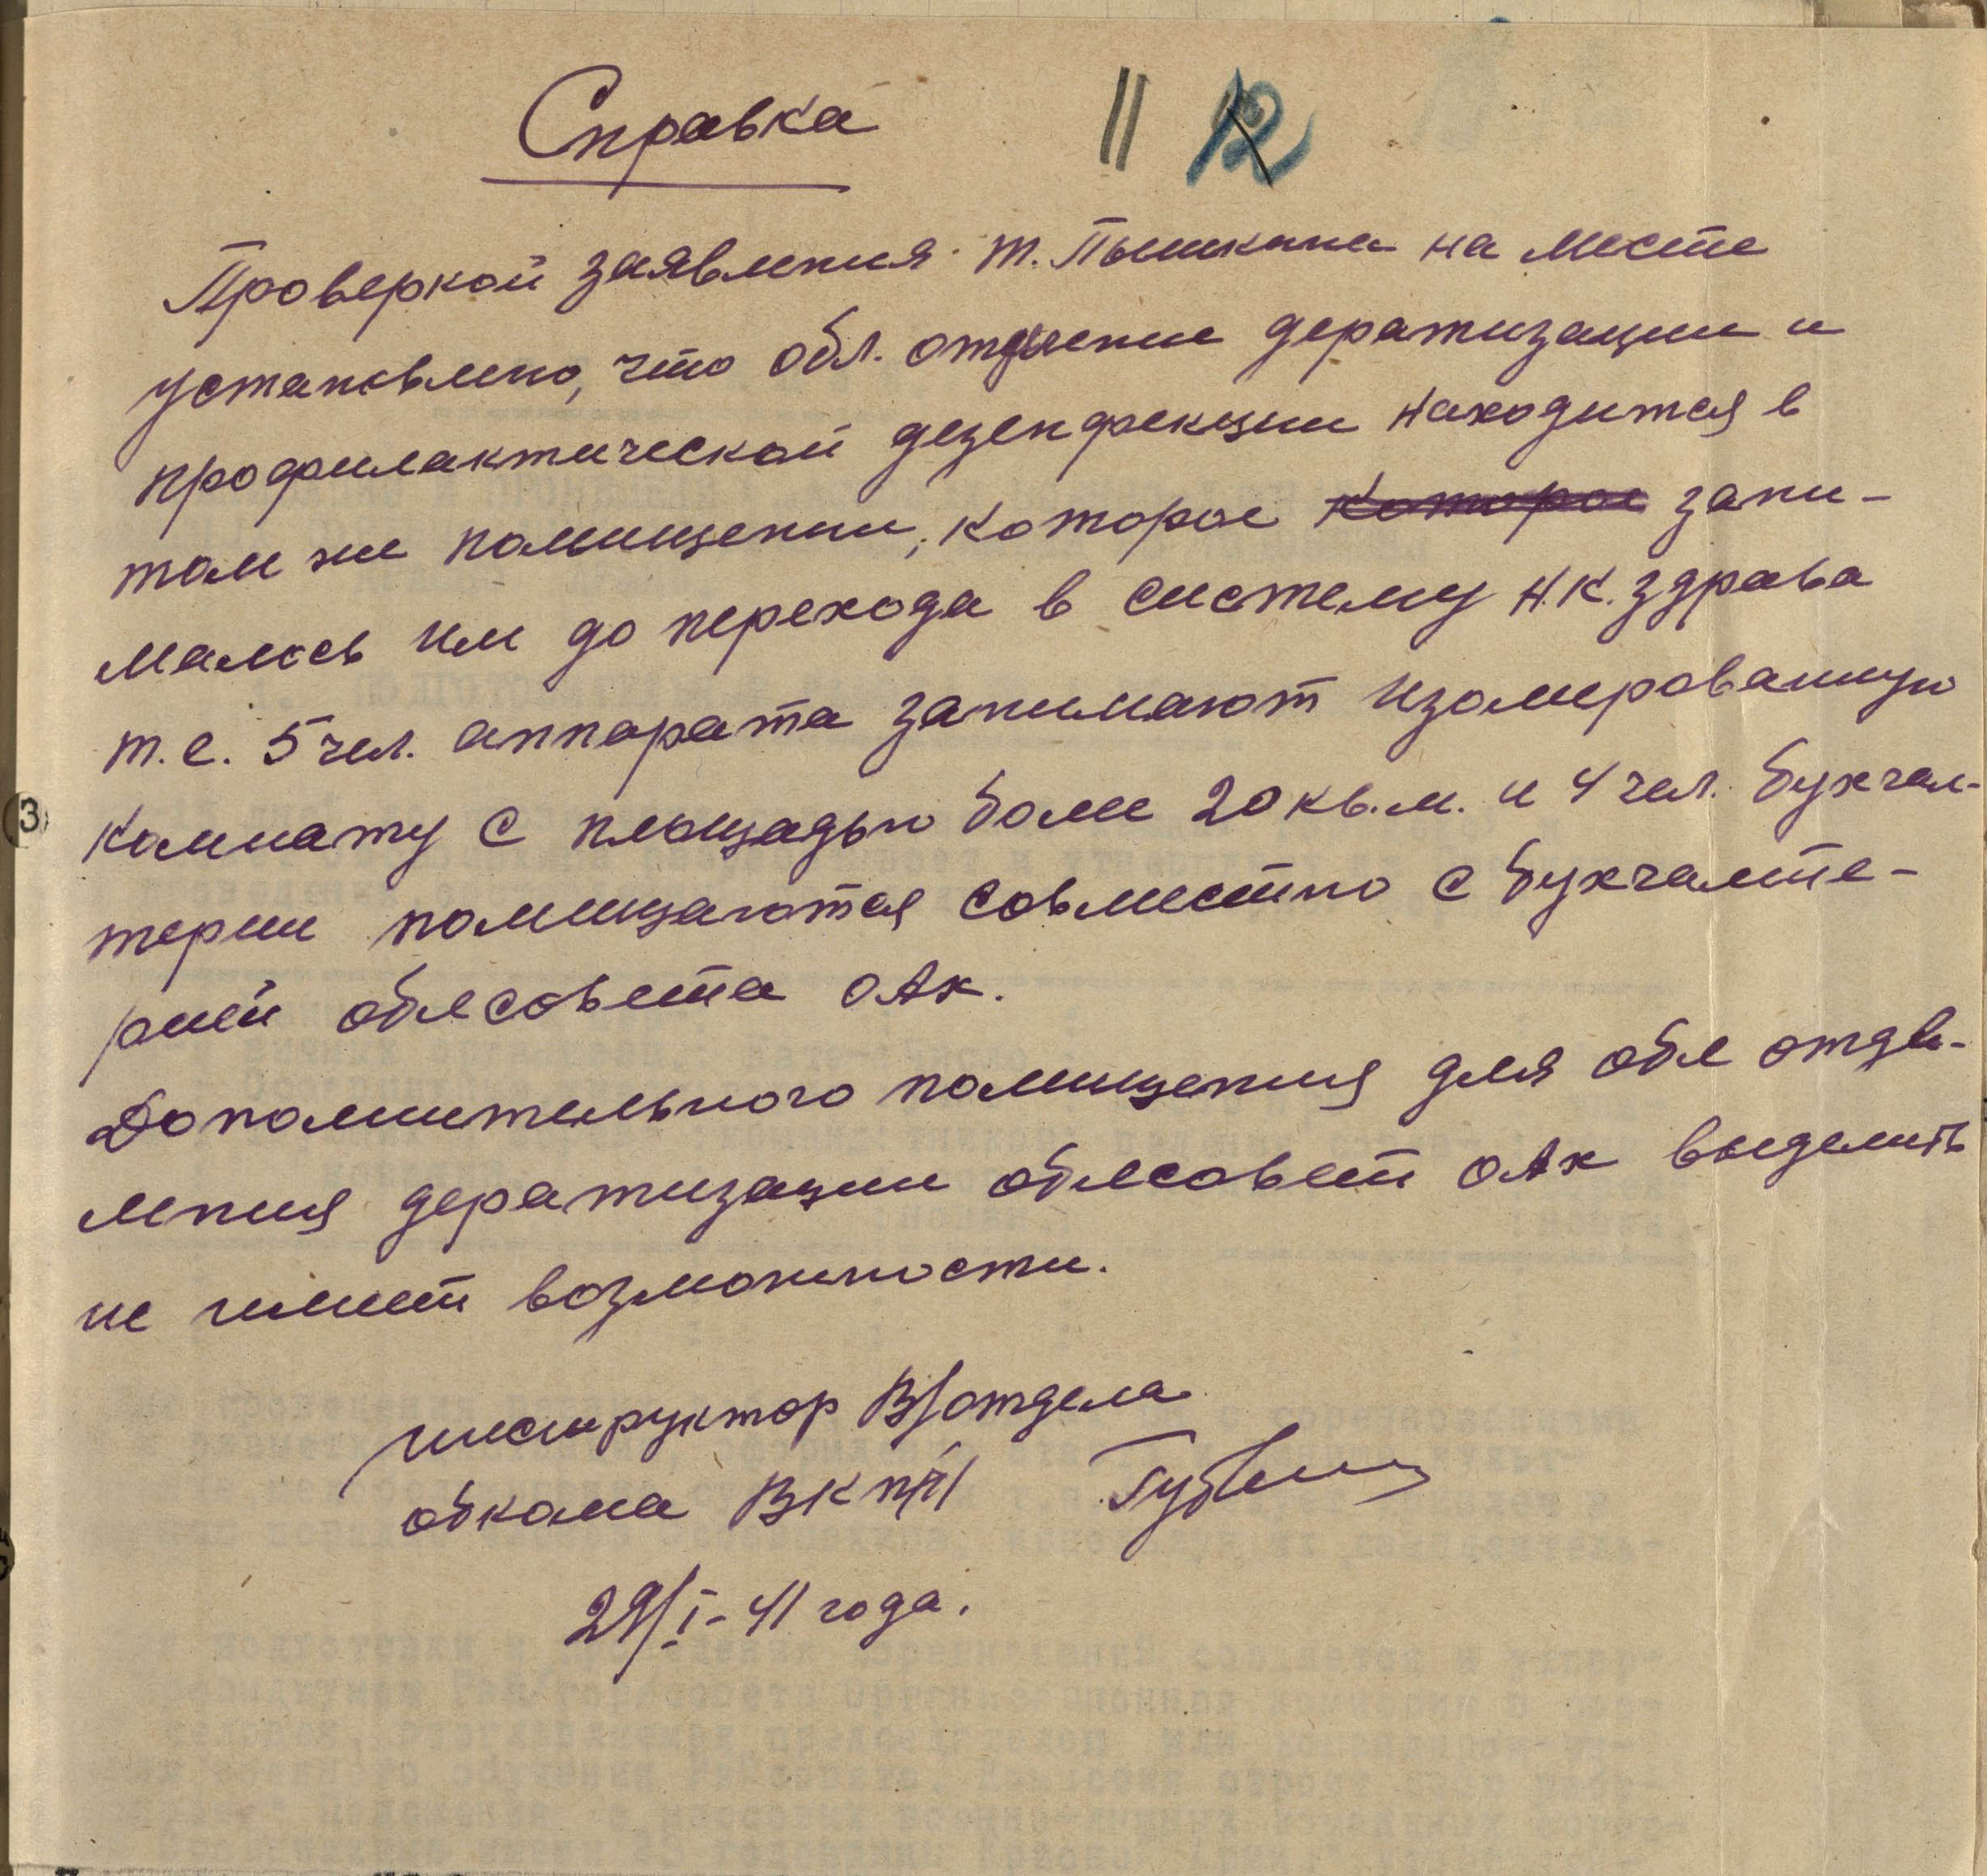 Справка
11 12
Проверкой заявления т. Пышкина на месте
установлено, что обл. отделение дератизации и
профилактической дезенфекции находится в
том же помещении, которое которое зани-
малось им до перехода в систему Н.К.здрава
т.е. 5 чел. аппарата занимают изолированную
комнату с площадью более 20 кв.м. и 4 чел. бухгал-
терии помещаются совместно с бухгалте-
рией облсовета ОАХ.
Дополнительного помещения для обл отде-
ления дератизации облсовет ОАХ выделить
не имеет возможности.
инструктор В/отдела
обкома ВКП/б/
29/I-41 года.
3